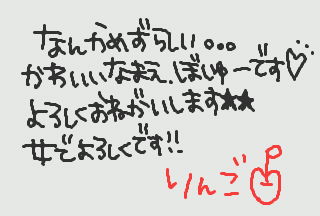 なんかめずらしい。。。
かわいいなまえ、ぼしゅーです♡
よろしくおねがいします★★
女でよろしくです!!
りんご